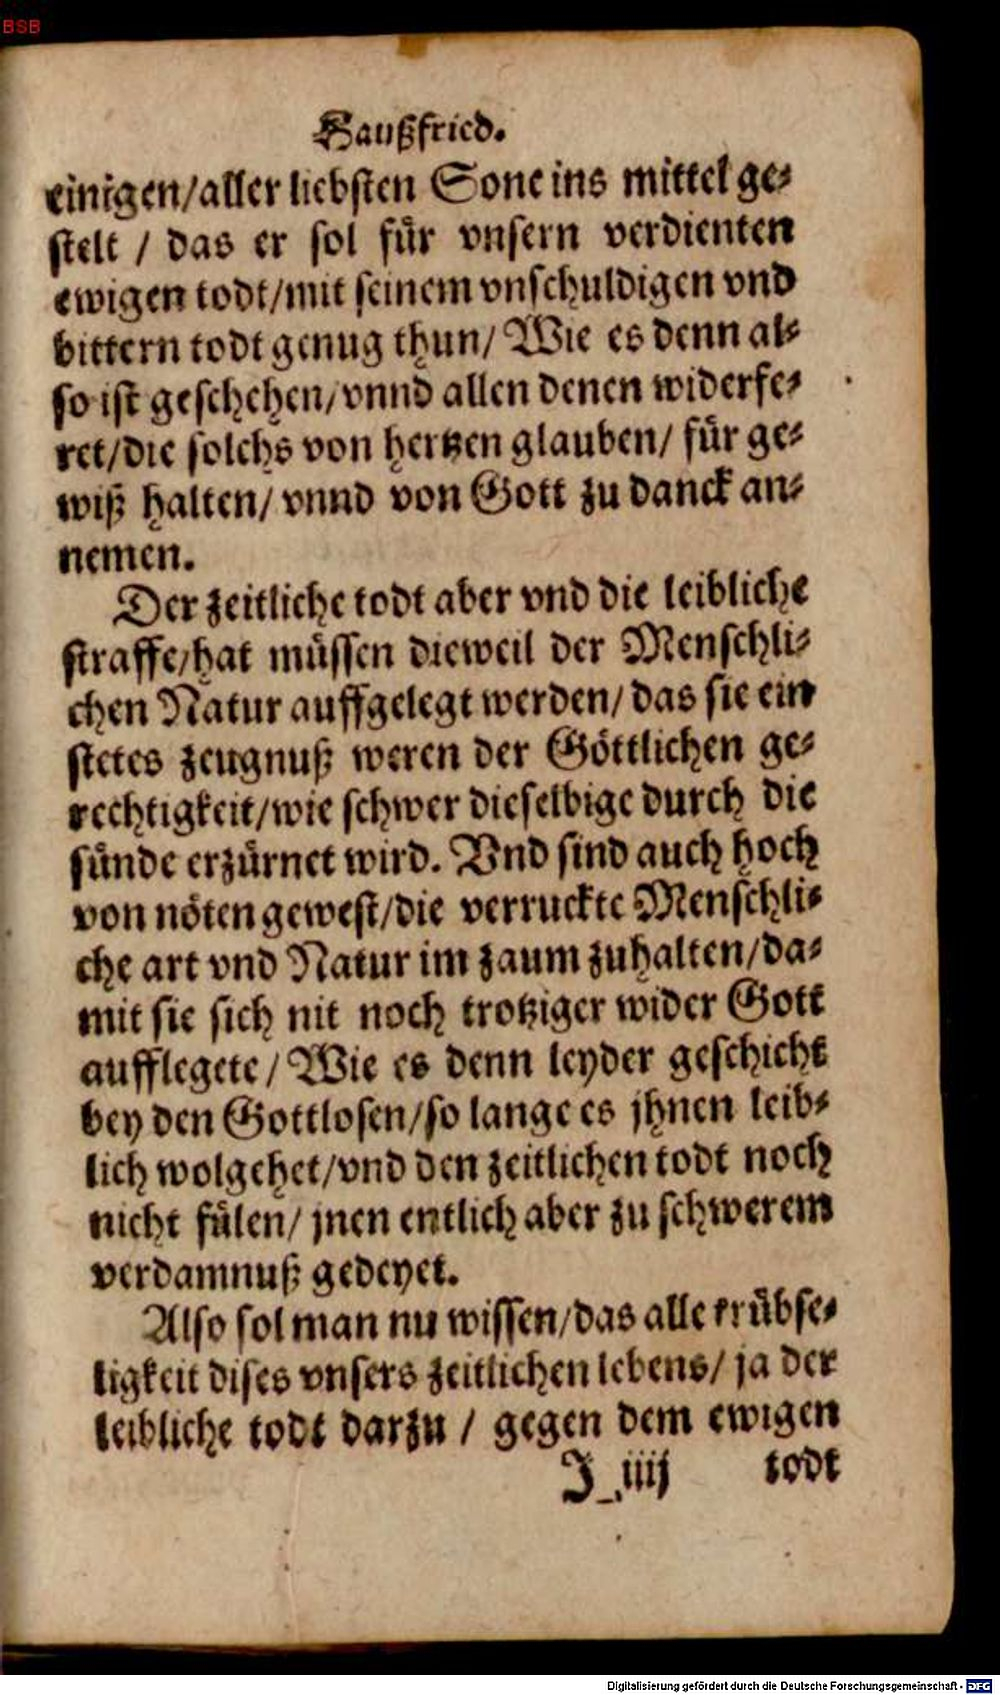 BSB
Haußfried.
einigen/aller liebsten Sone ins mittel ge-
stelt / das er sol für vnsern verdienten
ewigen todt/mit seinem vnschuldigen vnd
bittern todt genug thun/ Wie es denn al-
so ist geschehen/vnnd allen denen widerfe-
ret/die solchs von hertzen glauben/ für ge-
wiß halten/ vnnd von Gott zu danck an-
nemen.
Der zeitliche todt aber vnd die leibliche
straffe/hat müssen dieweil der Menschli-
chen Natur auffgelegt werden/ das sie ein
stetes zeugnuß weren der Göttlichen ge-
rechtigkeit/wie schwer dieselbige durch die
sünde erzürnet wird. Vnd sind auch hoch
von nöten gewest/die verruckte Menschli-
che art vnd Natur im zaum zuhalten/da-
mit sie sich nit noch trotziger wider Gott
aufflegete / Wie es denn leyder geschicht
bey den Gottlosen/so lange es jhnen leib-
lich wolgehet/vnd den zeitlichen todt noch
nicht fülen/ jnen entlich aber zu schwerem
verdamnuß gedeyet.
Also sol man nu wissen/das alle trübse-
ligkeit dises vnsers zeitlichen lebens/ ja der
leibliche todt darzu / gegen dem ewigen
J iiij todt
Digitalisierung gefördert durch die Deutsche Forschungsgemeinschaft - DFG